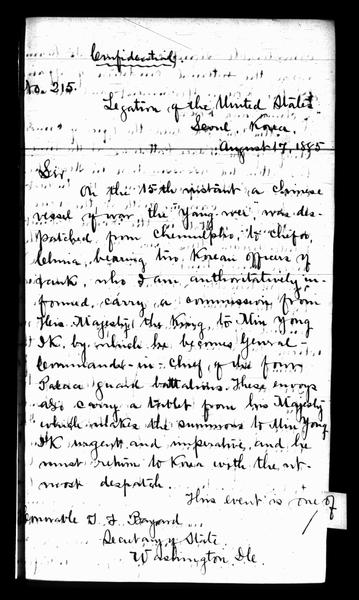 Confidential
No. 215.
Legation of the United States
Seoul, Korea,
August 17, 1885
Sir,
On the 15th instant a Chinese
vessel of war the "Yang wei" was des-
patched from Chemulpho, to Chefoo,
China, bearing two Korean officers of
rank, who I am authoritatively in-
formed, carry a commission from
His Majesty, the King, to Min Yong
IK, by which he becomes General-
Commander-in-Chief, of the four
Palace guard battalions. These envoys
also carry a tablet from his Majesty
which makes the summons to Min Yong
IK urgent and imperative, and he
must return to Korea with the ut-
most despatch.
This event is one of
Honorable T F Bayard
Secretary of State
Washington, D.C.